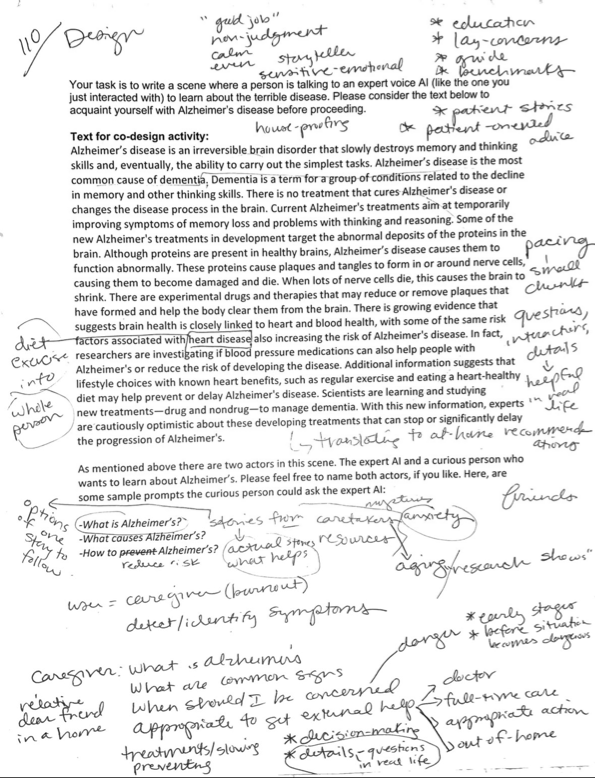 110/Design
"good job"
non-judgment
calm
even
storyteller
sensitive-emotional
* education
* lay-concerns
* guide
* benchmarks
Your task is to write a scene where a person is talking to an expert voice AI (like the one you
just interacted with) to learn about the terrible disease. Please consider the text below to
acquaint yourself with Alzheimer's disease before proceeding.
* patient stories
* patient-oriented
advice
house-proofing
Text for co-design activity:
Alzheimer's disease is an irreversible brain disorder that slowly destroys memory and thinking
skills and, eventually, the ability to carry out the simplest tasks. Alzheimer's disease is the most
common cause of dementia. Dementia is a term for a group of conditions related to the decline
in memory and other thinking skills. There is no treatment that cures Alzheimer's disease or
changes the disease process in the brain. Current Alzheimer's treatments aim at temporarily
improving symptoms of memory loss and problems with thinking and reasoning. Some of the
new Alzheimer's treatments in development target the abnormal deposits of the proteins in the
brain. Although proteins are present in healthy brains, Alzheimer's disease causes them to
function abnormally. These proteins cause plaques and tangles to form in or around nerve cells,
causing them to become damaged and die. When lots of nerve cells die, this causes the brain to
shrink. There are experimental drugs and therapies that may reduce or remove plaques that
have formed and help the body clear them from the brain. There is growing evidence that
suggests brain health is closely linked to heart and blood health, with some of the same risk
factors associated with heart disease also increasing the risk of Alzheimer's disease. In fact,
researchers are investigating if blood pressure medications can also help people with
Alzheimer's or reduce the risk of developing the disease. Additional information suggests that
lifestyle choices with known heart benefits, such as regular exercise and eating a heart-healthy
diet may help prevent or delay Alzheimer's disease. Scientists are learning and studying
new treatments—drug and nondrug—to manage dementia. With this new information, experts
are cautiously optimistic about these developing treatments that can stop or significantly delay
the progression of Alzheimer's.
pacing
small
chunks
questions,
interactors,
details
helpful
in real
life
diet
exercise
info
whole
person
translating to at-home recommend
ations
As mentioned above there are two actors in this scene. The expert AI and a curious person who
wants to learn about Alzheimer's. Please feel free to name both actors, if you like. Here, are
some sample prompts the curious person could ask the expert AI:
-What is Alzheimer's?
-What causes Alzheimer's?
-How to prevent Alzheimer's?
reduce risk
options
or one
story to
follow
stories from caretakers/anxiety
actual stories
what helps
resources
friends
aging/"research shows"
user = caregiver (burnout)
detect/identify symptoms
danger
* early stages
* before situation
becomes dangerous
Caregiver: What is alzheimers
What are common signs
When should I be concerned
appropriate to get external help
relative
dear friend
in a home
treatments/slowing
preventing
* decision-making
* details-questions
in real life
doctor
full-time care
appropriate action
out-of-home